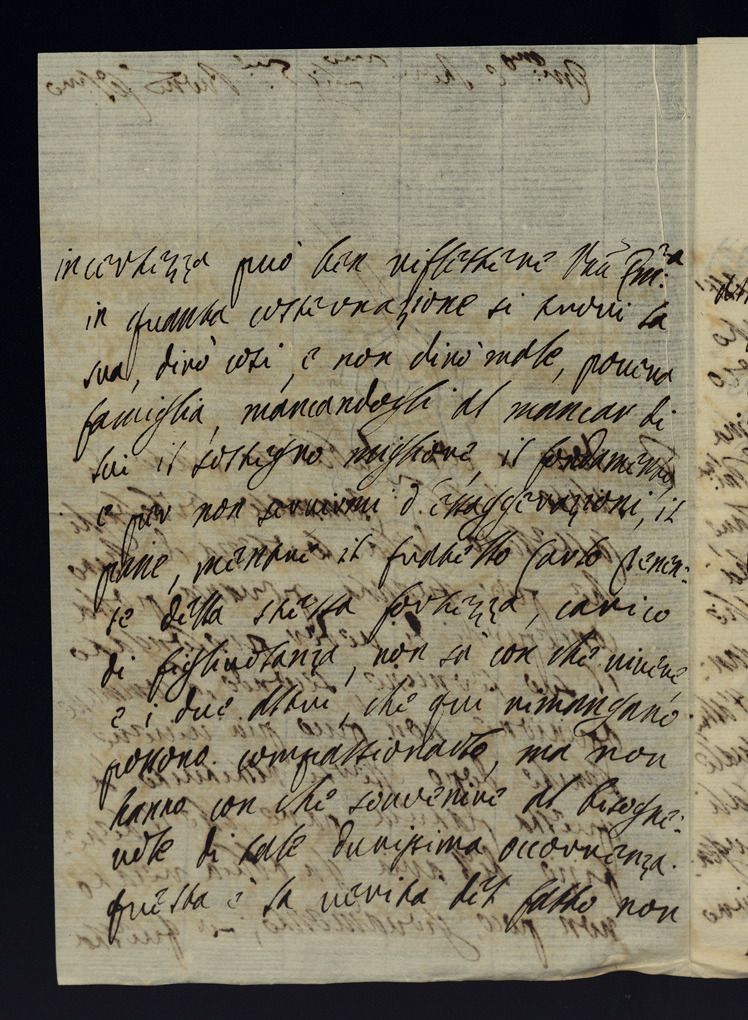 incertezza può ben riflettere V'ra Em:za
in quanta costernazione si trovi la
sua, dirò così, e non dirò male, povera
famiglia, mancandogli al mancar di
lui il sostegno migliore, il fondamento,
e per non servirmi d'essaggerazioni, il
pane, mentre il fratello Carlo Tenen:
te della stessa fortezza, carico
di figliuolanza, non sà con che vivere
e i due altri, che qui rimangano
possono compassionarlo, ma non
hanno con che sovvenire al bisogne:
vole di tale durissima occorrenza.
questa è la verità del fatto non